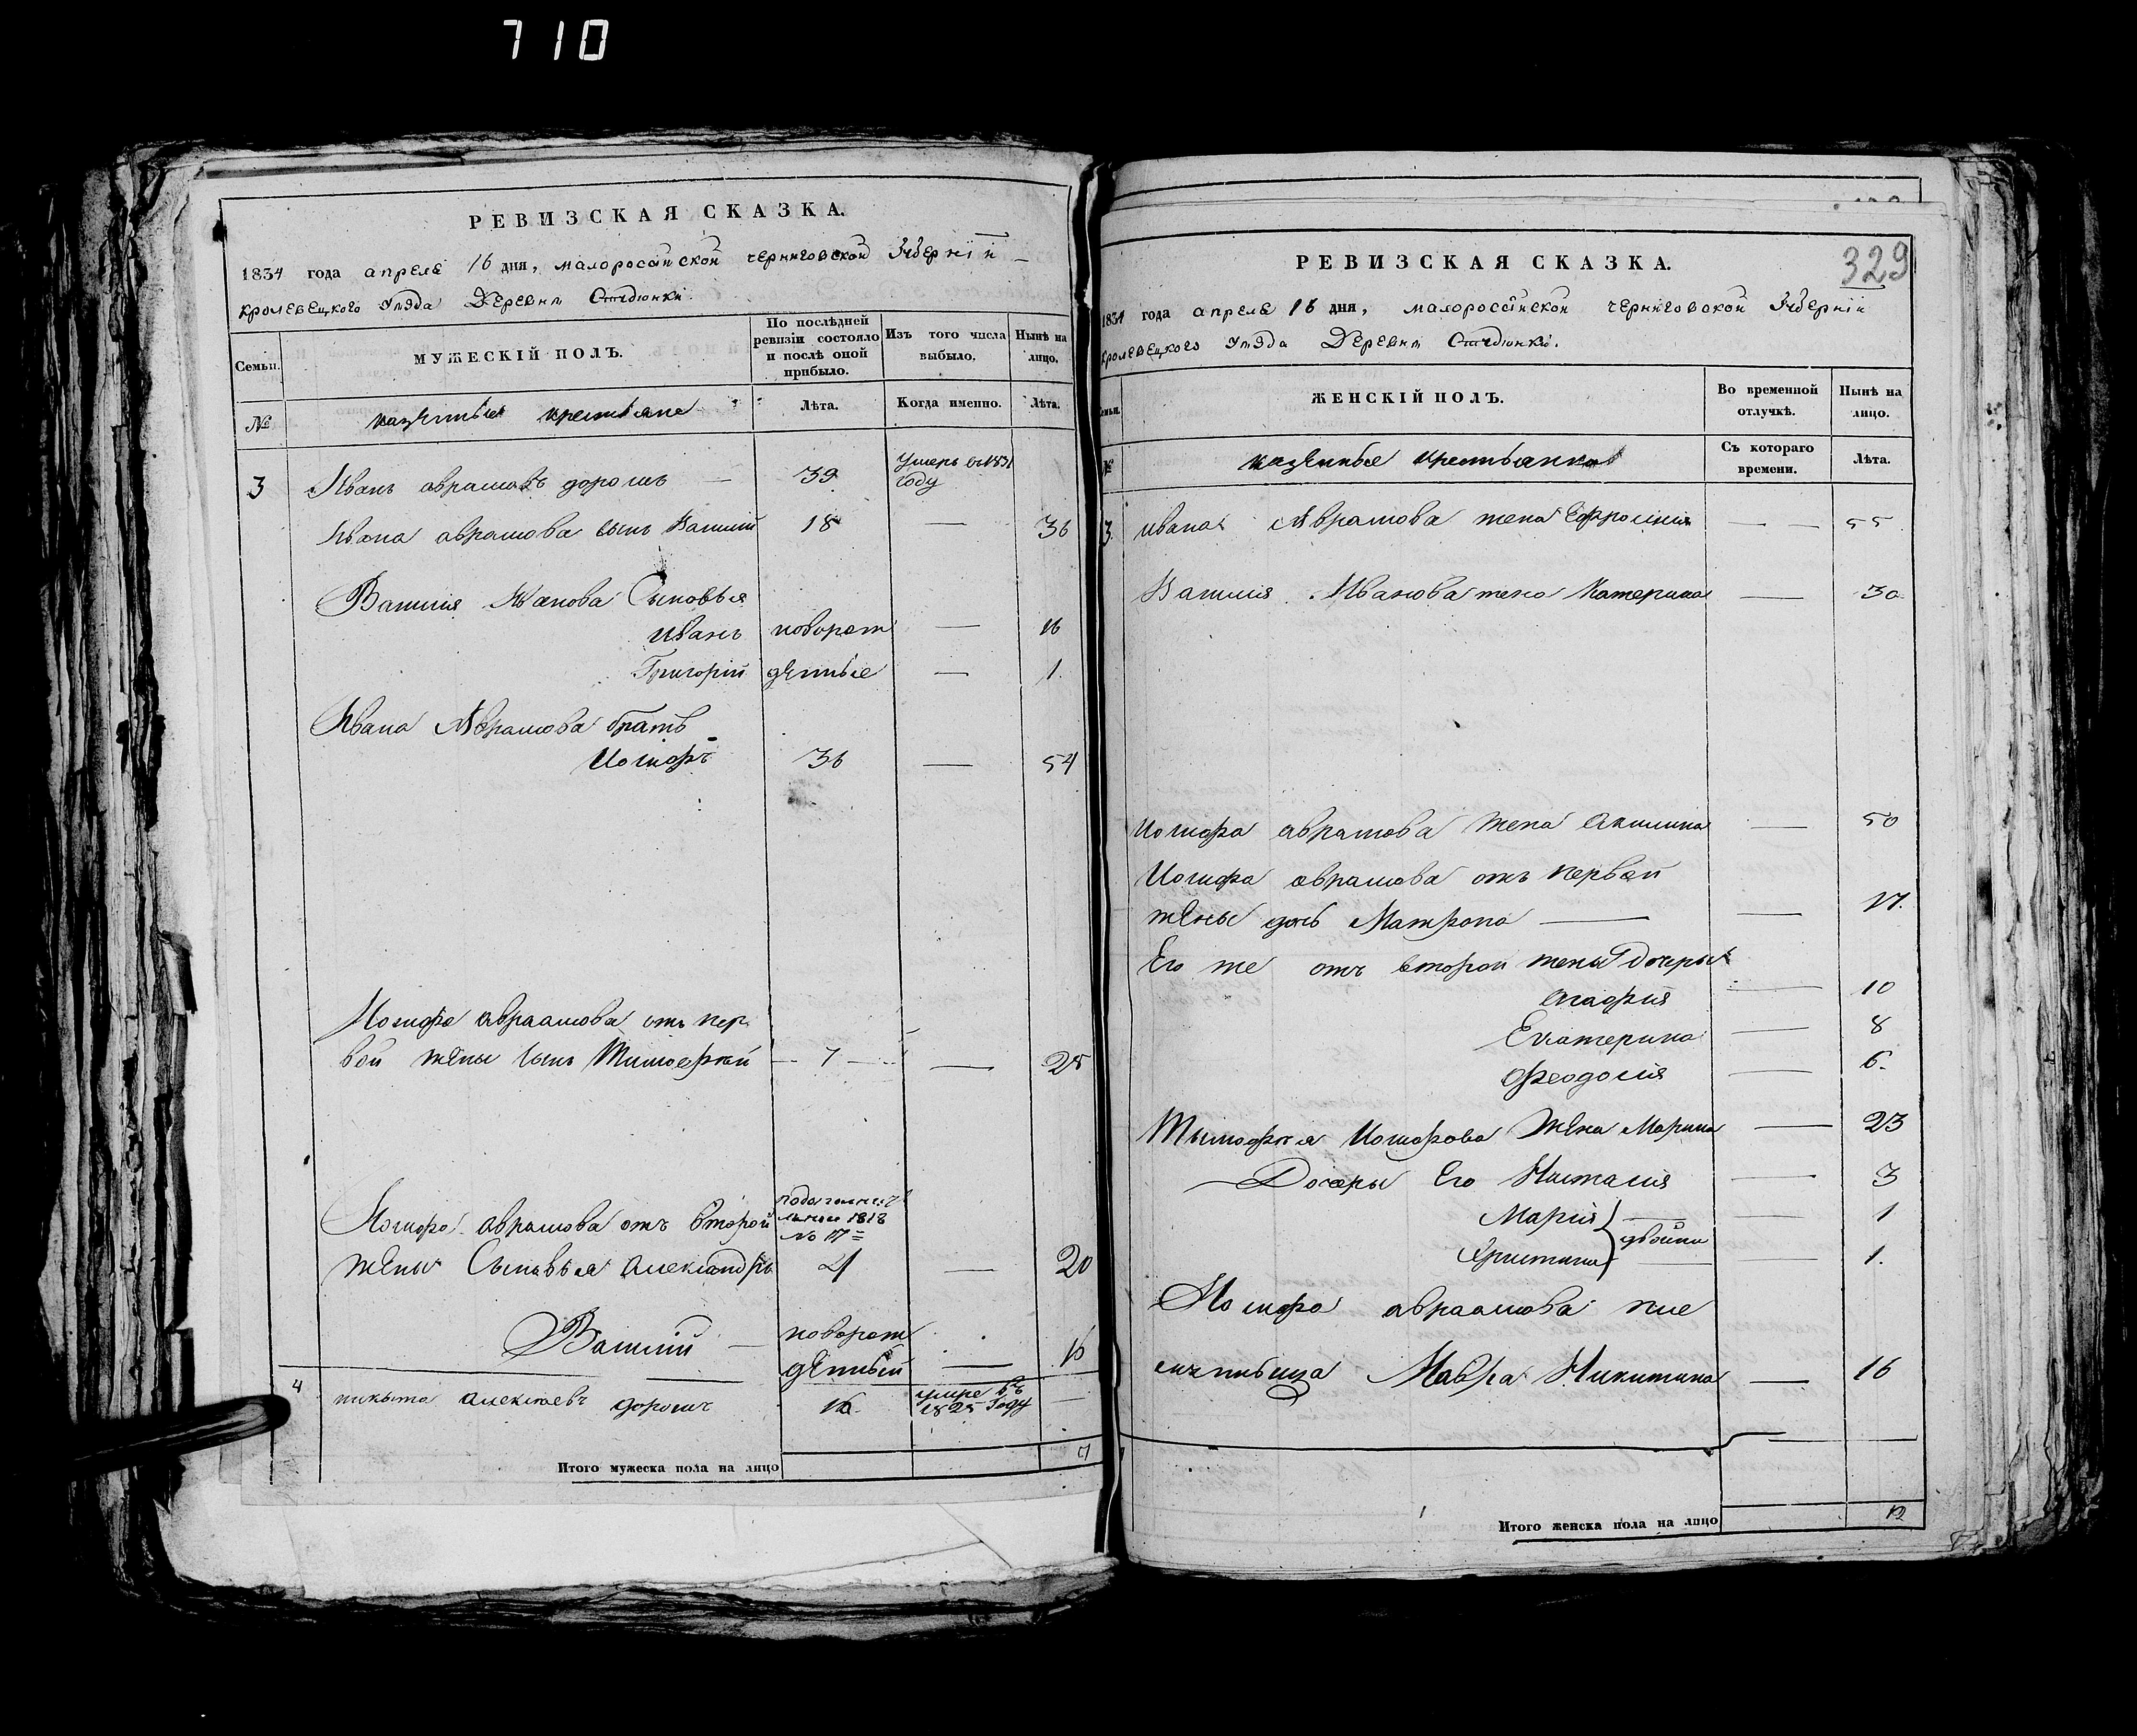 710
РЕВИЗСКАЯ СКАЗКА.
1834 года апреля 16 дня, малоросійской черниговской Губерніи
кролевецкого уѣзда Деревни Студюнки.
Семьи.
МУЖЕСКІЙ ПОЛЪ.
По послѣдней ревизіи состояло и послѣ оной прибыло.
Изъ того числа выбыло.
Нынѣ на лицо.
№
казенные крестьяне
Лѣта.
Когда именно.
Лѣта.
3 Иванъ аврамовъ дорошъ — 39 Умеръ въ 1831 году
Ивана аврамова сынъ Василій 18 — 36
Василія Иванова Сыновья
Иванъ новорож — 16
Григорій денные — 1.
Ивана Аврамова братъ
Иосифъ 36 — 54
Иосифа авраамова отъ пер
вой жены сынъ Тимофѣй 7 — 25
Иосифа аврамова отъ второй
1818 № 17
жены Сыновья александръ 4 — 20
Василий — новорож
денный — 16
4 никыта алексѣевъ дорошъ 16 умре въ 1825 году —
Итого мужеска пола на лицо 7
329
РЕВИЗСКАЯ СКАЗКА.
1834 года апреля 16 дня, малоросійской черниговской Губерніи
кролевецкого уѣзда Деревни Студюнки.
Семьи.
ЖЕНСКІЙ ПОЛЪ.
Во временной отлучкѣ.
Нынѣ на лицо.
№
казенные крестьянки
Съ котораго времени.
Лѣта.
3. ивана Аврамова жена Ефросинія — — 55
Василія Иванова жена Катерина — 30
Иосифа аврамова жена Акилина — 50
Иосифа аврамова отъ первой
жены дочь Матрона — — 17.
Его же отъ второй жены Дочеры
агафия — 10
Екатерина — 8
Феодосия — 6.
Тымофѣя Иосифова Жена Марина — 23
Дочеры Его Настасия — 3
Мария — — 1
двойни
Христина — — 1.
Иосифа авраамова пле
мянныца Мавра Никитина — 16
Итого женска пола на лицо 12